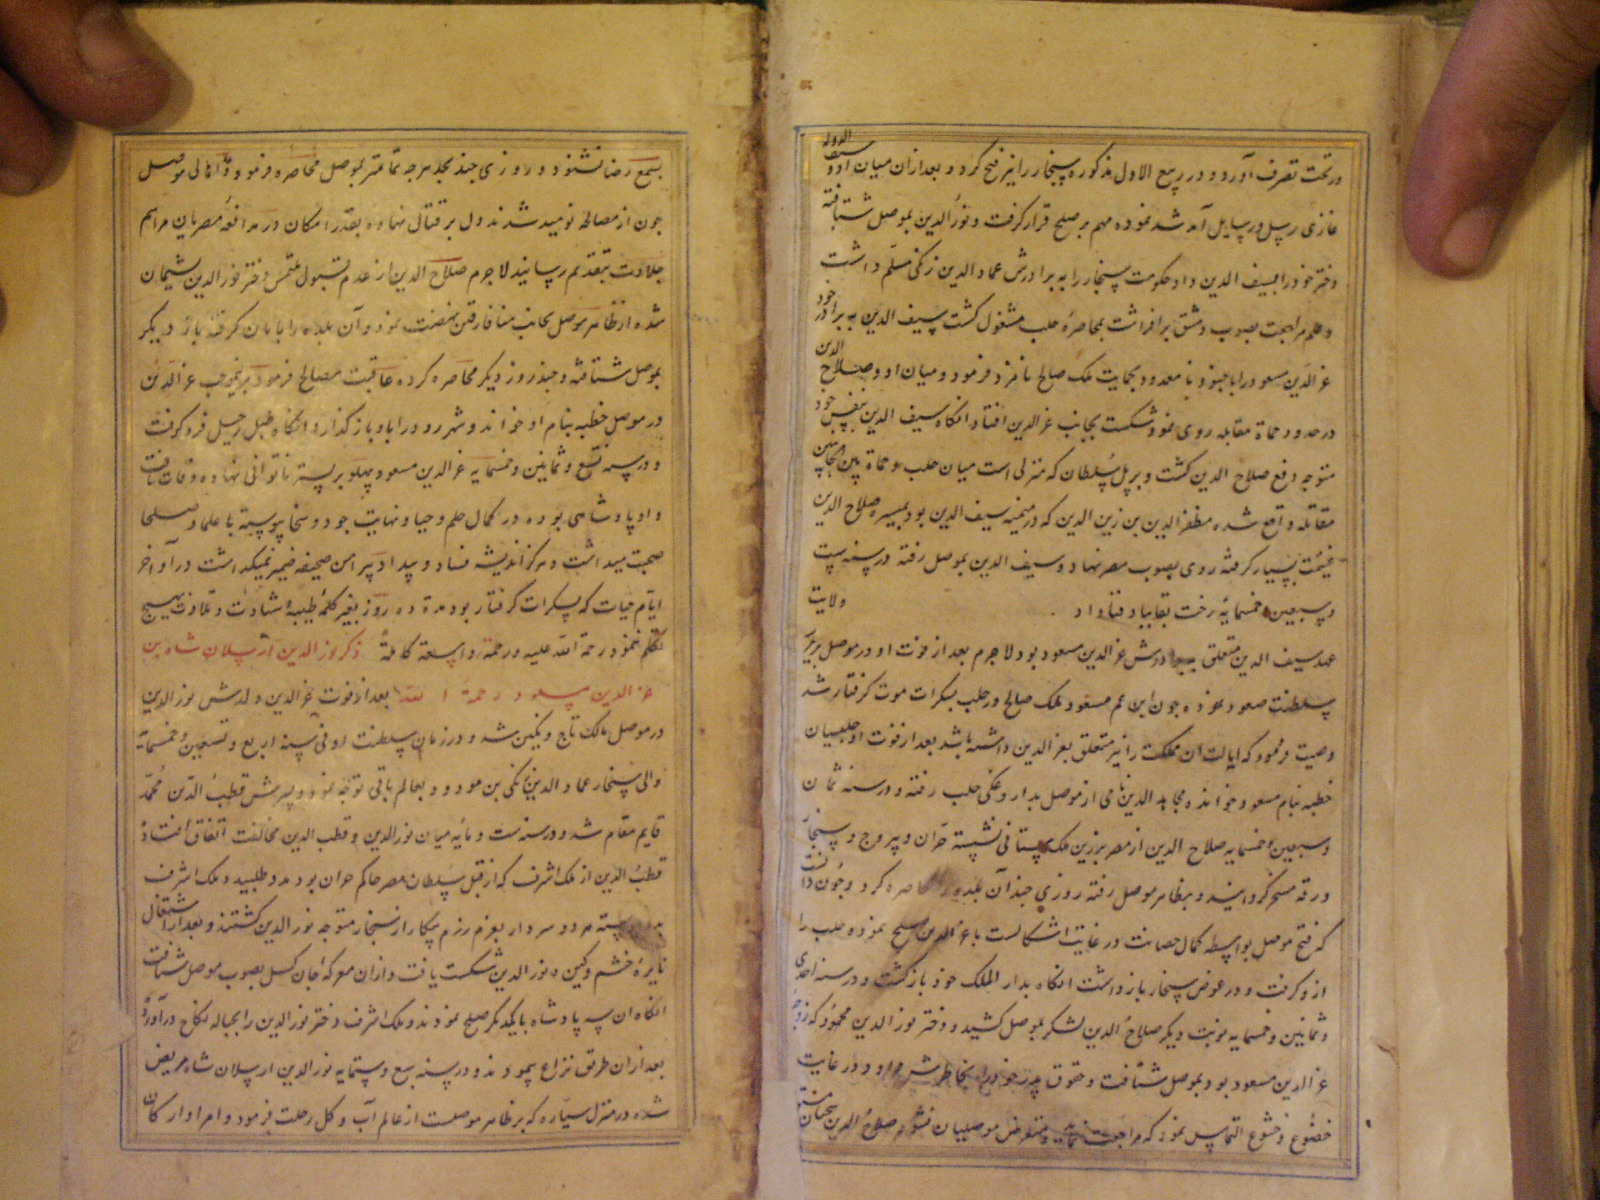 در تحت تصرف آورد و در ربیع الاول مذکوره سنجار را نیز فتح کرد و بعد ازان میان او و سیف الدوله
غازی رسل و رسایل آمد شد نموده مهم بر صلح قرار گرفت و نور الدین بموصل شتافته
دختر خود را بسیف الدین داد و حکومت سنجار را به برادرش عماد الدین زنکی مسلم داشت
و علم مراجعت بصوب دمشق برافراشت بمحاصرهٔ حلب مشغول کشت سیف الدین به برادر خود
عز الدین مسعود را با جنود نا معدود بحمایت ملک صالح نامزد فرمود و میان او و صلاح الدین
در حدود حماة مقابله روی نمود شکست بجانب عز الدین افتاد انکاه سیف الدین بنفس خود
متوجه دفع صلاح الدین کشت و بر پل سلطان که منزلی است میان حلب و حماة بین الجانبین
مقاتله واقع شده مظفر الدین بن زین الدین که در میمنه سیف الدین بود بمیسره صلاح الدین
غنیمت بسیار کرفته روی بصوب مصر نهاد و سیف الدین بموصل رفته در سنه ست
و سبعین و خمسمایه رخت بقا بباد فنا داد ولایت
عهد سیف الدین متعلق ببرادرش عز الدین مسعود بود لاجرم بعد از فوت او در موصل بر
سلطنت صعود نموده چون ابن عم مسعود ملک صالح در حلب بسکرات موت کرفتار شد
وصیت فرمود که ایالت ان مملکت را نیز متعلق بعز الدین داشته باشد بعد از فوت او حلبیان
خطبه بنام مسعود خوانده مجاهد الدین نامی از موصل بداروغکی حلب رفته و در سنه ثمان
و سبعین و خمسمایه صلاح الدین از مصر بر زین ملک ستانی نشسته حران و سروج و سنجار
و رقه مسخر کردانید و بر ظاهر موصل رفته روزی چند آن بلده را محاصره کرد و چون دانست
که فتح موصل بواسطه کمال حصانت در غایت اشکالست با عز الدین صلح نموده حلب را
ازو کرفت و در عوض سنجار باز داشت انکاه بدار الملک خود باز کشت و در سنه احدی
و ثمانین و خمسمایه نوبت دیکر صلاح الدین لشکر بموصل کشید و دختر نور الدین محمود که زوجه
عز الدین مسعود بود بموصل شتافت و حقوق پدر خود را بخاطرش داد و در غایت
خضوع و خشوع التماس نمود که مراجعت نماید و متعرض موصلیان نشود صلاح الدین سخنان
بسمع رضا نشنود و روزی چند بجد هرچه تمامتر بموصل محاصره فرمود و اهالی موصل
چون از مصالحه نومید شدند دل بر قتال نهاده بقدر امکان در مدافعهٔ مصریان مراسم
جلادت بتقدیم رسانیدند لاجرم صلاح الدین از عدم قبول ملتمس دختر نور الدین پشیمان
شده از ظاهر موصل بجانب میافارقین نهضت نمود و آن بلده را بامان کرفته بار دیکر
بموصل شتافته و چند روز دیکر محاصره کرده عاقبت مصالحه فرمود بر انموجب عز الدین
در موصل خطبه بنام او خواند و شهر زور را باو باز کذارد انکاه طبل رحیل فرو کوفت
و در سنه تسع و ثمانین و خمسمایه عز الدین مسعود پهلو بر بستر ناتوانی نهاده وفات یافت
و او پادشاهی بوده در کمال حلم و حیا و نهایت جود و سخا پیوسته با علما و صلحا
صحبت میداشت و هرکز اندیشه فساد و بیداد پیرامن صحیفه ضمیر نمیکذاشت در آواخر
ایام حیات که بسکرات کرفتار بود مدة ده روز بغیر کلمهٔ طیبهٔ شهادت و تلاوت بهیچ
تکلم ننمود رحمة الله علیه و رحمة واسعة کاملة ذکر نور الدین ارسلان شاه بن
عز الدین مسعود رحمة الله بعد از فوت عز الدین ولدش نور الدین
در موصل مالک تاج و نکین شد و در زمان سلطنت او فی سنه اربع و تسعین و خمسمایه
والی سنجار عماد الدین زنکی بن مودود بعالم باقی توجه نمود و پسرش قطب الدین محمد
قایم مقام شد و در سنه ست و مایه میان نور الدین و قطب الدین مخالفت اتفاق افتاده
قطب الدین از ملک اشرف که از قبل سلطان مصر حاکم حران بود مدد طلبید و ملک اشرف
هر دو سردار بعزم رزم پیکار از سنجار متوجه نور الدین کشتند و بعد از اشتعال
نایرهٔ خشم و کین نور الدین شکست یافت و ازان معرکه جان کسل بصوب موصل شتافت
انکاه ان سه پادشاه با یکدیکر صلح نمودند و ملک اشرف دختر نور الدین را بحباله نکاح درآورده
بعد ازان طریق نزاع نپیمودند و در سنه سبع و ستمایه نور الدین ارسلان شاه مریض
شده در منزل سیاره که بر ظاهر موصلست از عالم آب و کل رحلت فرمود و امرا و ارکان